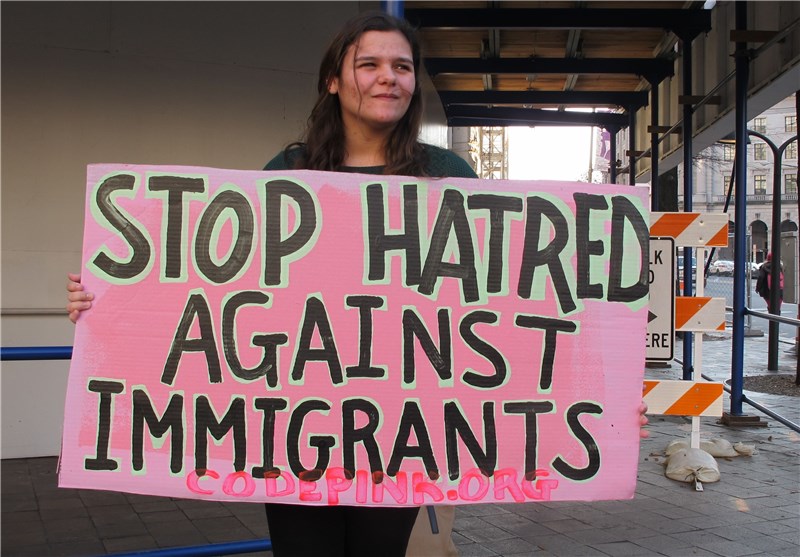 STOP HATRED
AGAINST
IMMIGRANTS
CODEPINK.ORG
LK
ERE